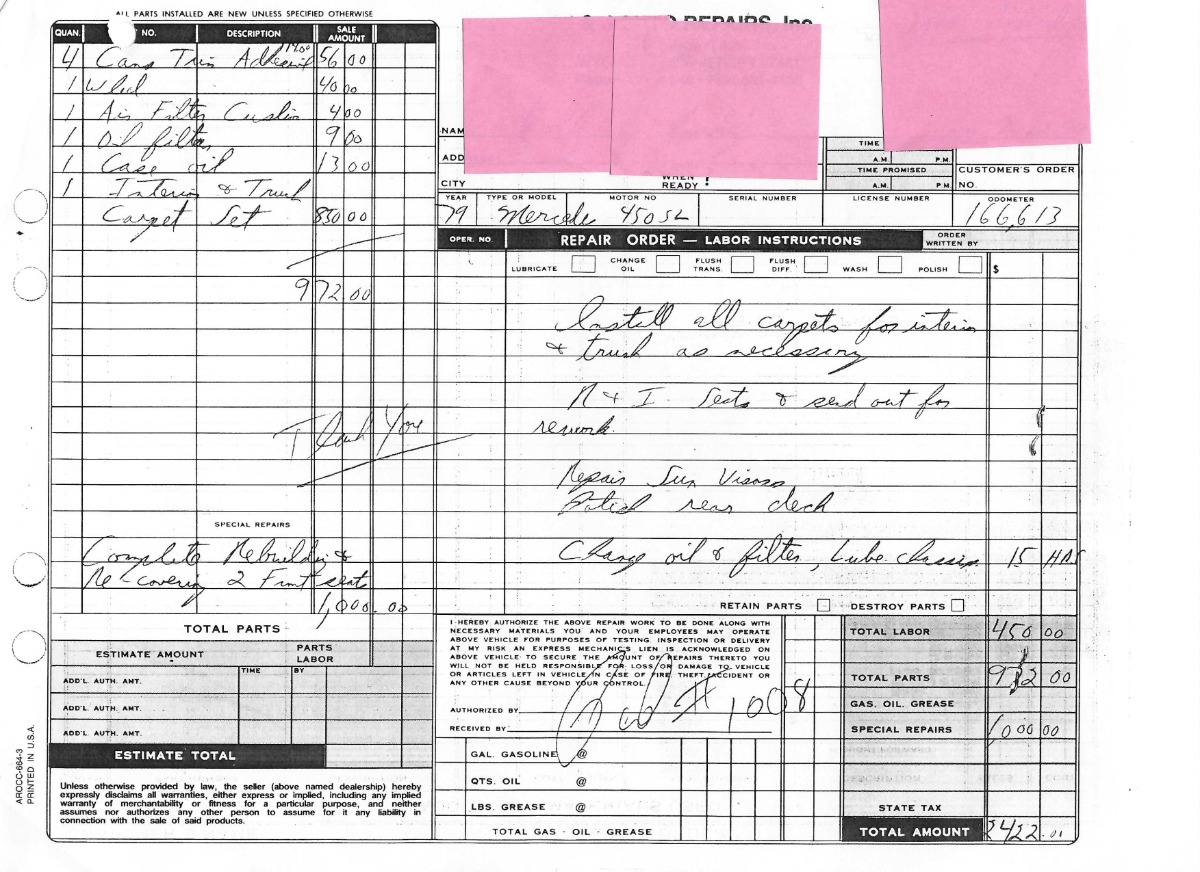 ALL PARTS INSTALLED ARE NEW UNLESS SPECIFIED OTHERWISE
QUAN. NO. DESCRIPTION SALE AMOUNT
4 Cans Trim Adhesive 14.00 56 00
1 40 00
1 Air Filter 4 00
1 Oil filter 9 00
1 Case oil 13 00
1 Interior & Trunk
Carpet Set 850 00
972 00
Thank You
SPECIAL REPAIRS
Complete Rebuilding &
Re-covering 2 Front seats
1,000.00
TOTAL PARTS
ESTIMATE AMOUNT PARTS LABOR
TIME BY
ADD'L. AUTH. AMT.
ADD'L. AUTH. AMT.
ADD'L. AUTH. AMT.
ESTIMATE TOTAL
Unless otherwise provided by law, the seller (above named dealership) hereby
expressly disclaims all warranties, either express or implied, including any implied
warranty of merchantability or fitness for a particular purpose, and neither
assumes nor authorizes any other person to assume for it any liability in
connection with the sale of said products.
AROCC-664-3
PRINTED IN U.S.A.
REPAIRS, Inc
NAM
ADD
CITY
WHEN READY ?
TIME
A.M. P.M.
TIME PROMISED
A.M. P.M.
CUSTOMER'S ORDER
NO.
YEAR TYPE OR MODEL MOTOR NO SERIAL NUMBER LICENSE NUMBER ODOMETER
79 Mercedes 450 SL 166,613
OPER. NO. REPAIR ORDER — LABOR INSTRUCTIONS ORDER WRITTEN BY
LUBRICATE CHANGE OIL FLUSH TRANS. FLUSH DIFF. WASH POLISH $
Install all carpets for interior
& trunk as necessary
R & I Seats & send out for
rework.
Repair Sun Visors
rear deck
Change oil & filter, Lube chassis 15 HRS
RETAIN PARTS DESTROY PARTS
I HEREBY AUTHORIZE THE ABOVE REPAIR WORK TO BE DONE ALONG WITH
NECESSARY MATERIALS YOU AND YOUR EMPLOYEES MAY OPERATE
ABOVE VEHICLE FOR PURPOSES OF TESTING. INSPECTION OR DELIVERY
AT MY RISK AN EXPRESS MECHANIC'S LIEN IS ACKNOWLEDGED ON
ABOVE VEHICLE TO SECURE THE AMOUNT OF REPAIRS THERETO YOU
WILL NOT BE HELD RESPONSIBLE FOR LOSS OR DAMAGE TO VEHICLE
OR ARTICLES LEFT IN VEHICLE IN CASE OF FIRE THEFT ACCIDENT OR
ANY OTHER CAUSE BEYOND YOUR CONTROL
AUTHORIZED BY
RECEIVED BY
# 1008
GAL. GASOLINE @
QTS. OIL @
LBS. GREASE @
TOTAL GAS - OIL - GREASE
TOTAL LABOR 450 00
TOTAL PARTS 972 00
GAS. OIL. GREASE
SPECIAL REPAIRS 1,000 00
STATE TAX
TOTAL AMOUNT 2422.01